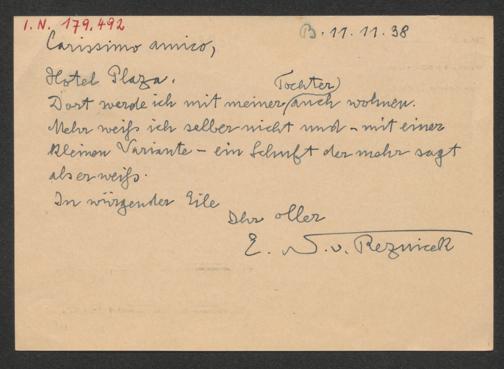 I.N. 179.492
B. 11.11.38
Carissimo amico,
Hotel Plaza.
Tochter
Dort werde ich mit meiner auch wohnen.
Mehr weiß ich selber nicht und – mit einer
kleinen Variante – ein Schuft der mehr sagt
als er weiß.
In würgender Eile
Ihr oller
E. N. v. Reznicek